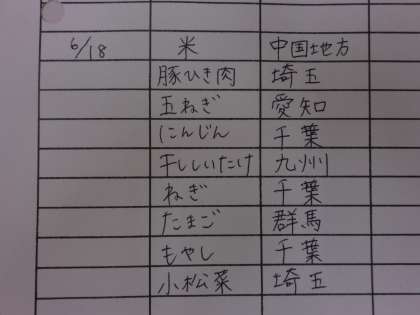 6/18 米 中国地方
豚ひき肉 埼玉
玉ねぎ 愛知
にんじん 千葉
干ししいたけ 九州
ねぎ 千葉
たまご 群馬
もやし 千葉
小松菜 埼玉